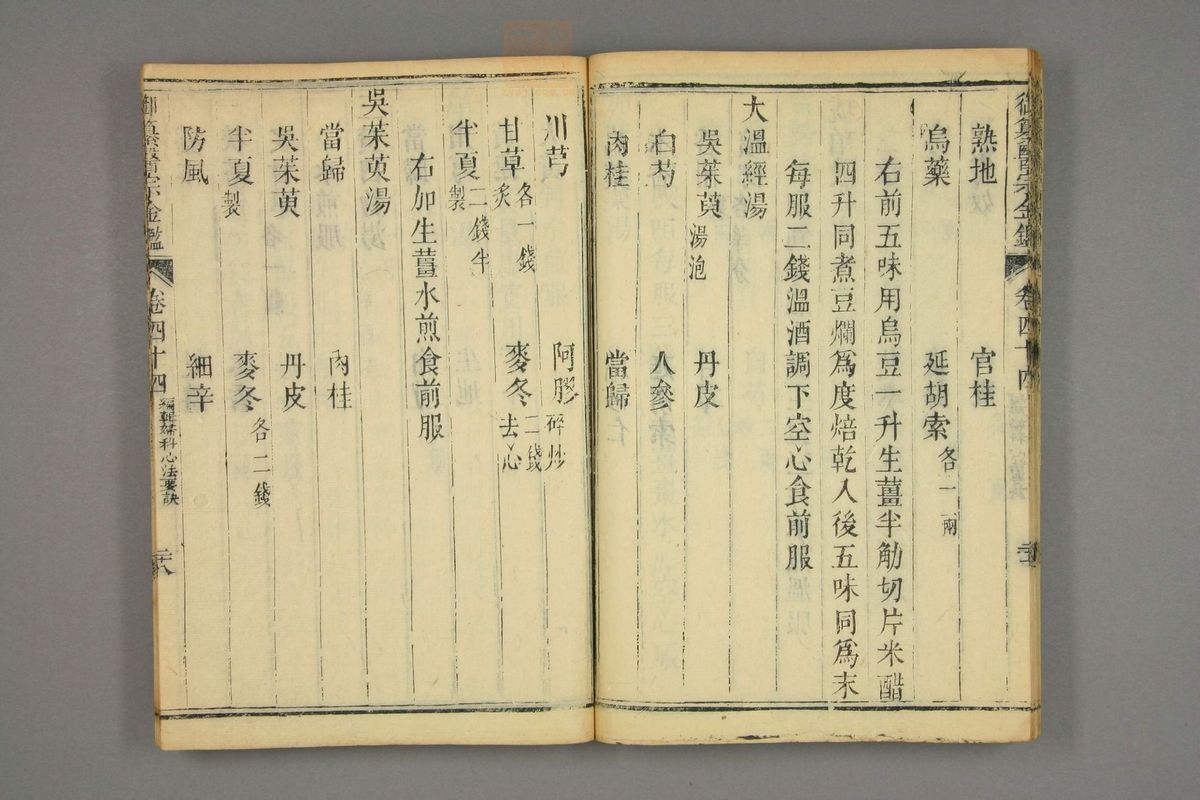 御纂醫宗金鑑 卷四十四
熟地 官桂
烏藥 延胡索各一兩
右前五味用烏豆一升生薑半觔切片米醋
四升同煮豆爛為度焙乾入後五味同為末
每服二錢溫酒調下空心食前服
大溫經湯
吳茱萸湯泡 丹皮
白芍 人參
肉桂 當歸
川芎 阿膠碎炒
甘草炙各一錢 麥冬去心二錢
半夏製二錢半
右加生薑水煎食前服
吳茱萸湯
當歸 肉桂
吳茱萸 丹皮
半夏製 麥冬各二錢
防風 細辛
御纂醫宗金鑑 卷四十四 編輯婦科心法要訣 二十八